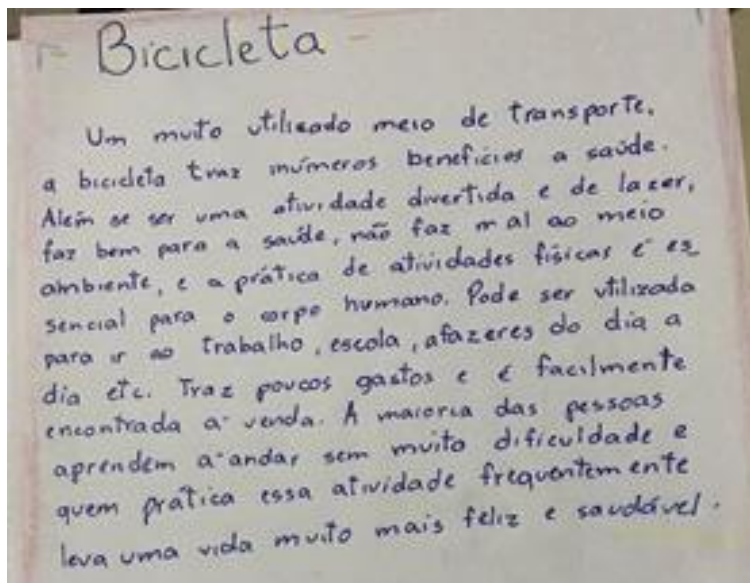 - Bicicleta -
Um muito utilizado meio de transporte,
a bicicleta traz inúmeros benefícios a saúde.
Além se ser uma atividade divertida e de lazer,
faz bem para a saúde, não faz mal ao meio
ambiente, e a prática de atividades físicas é es
sencial para o corpo humano. Pode ser utilizada
para ir ao trabalho, escola, afazeres do dia a
dia etc. Traz poucos gastos e é facilmente
encontrada a venda. A maioria das pessoas
aprendem a andar sem muito dificuldade e
quem prática essa atividade frequentemente
leva uma vida muito mais feliz e saudável.